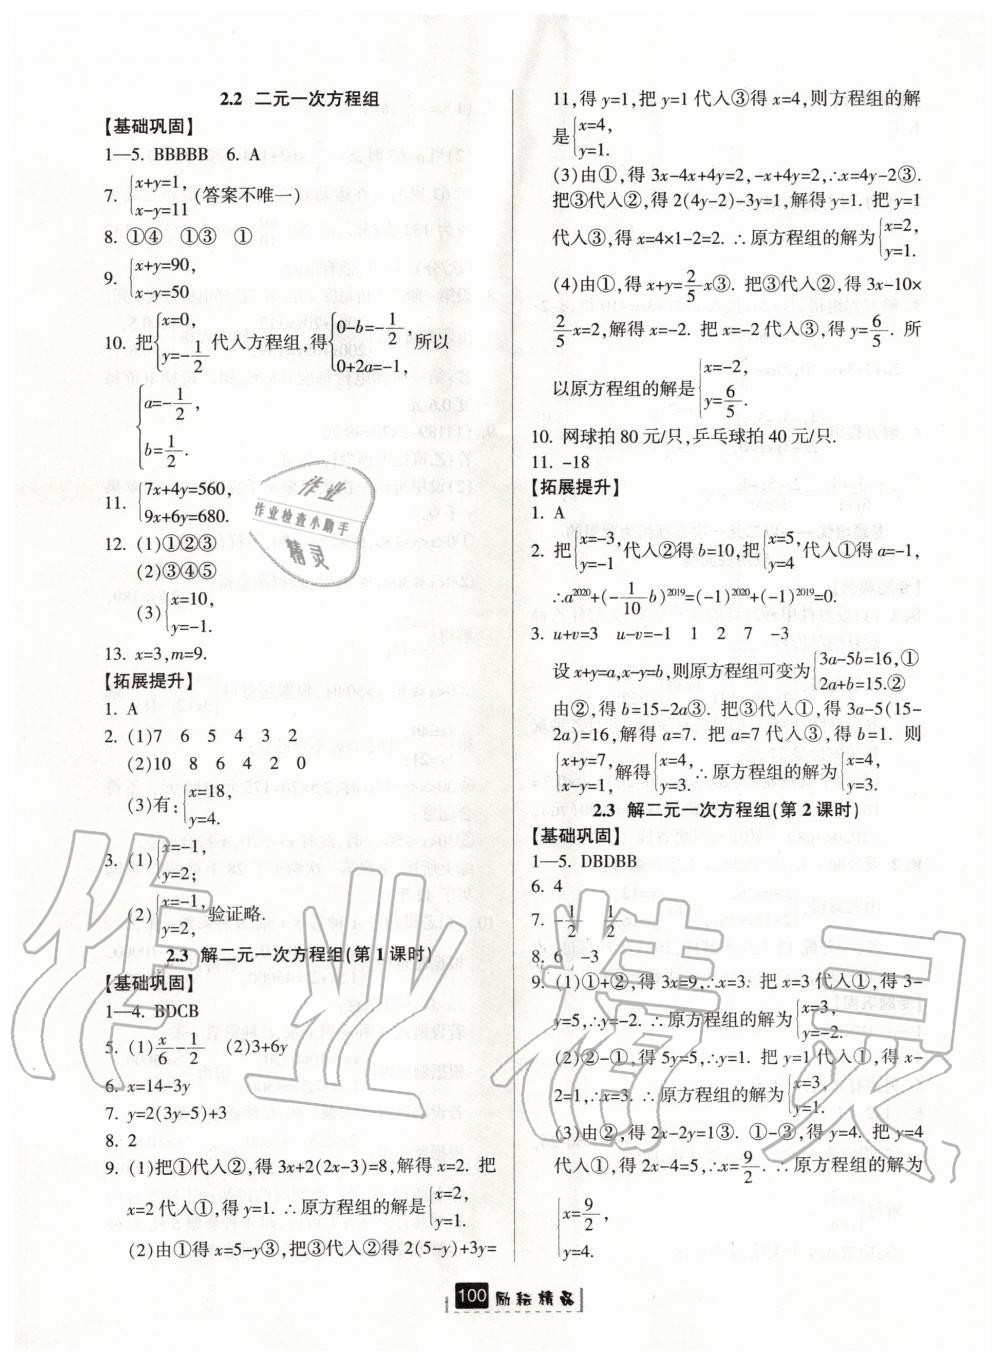 2.2 二元一次方程组
【基础巩固】
1—5. BBBBB 6. A
7. {x+y=1, x-y=11 (答案不唯一)
8. ①④ ①③ ①
9. {x+y=90, x-y=50
10. 把{x=0, y=-1/2 代入方程组,得{0-b=-1/2, 0+2a=-1, 所以
{a=-1/2, b=1/2.
11. {7x+4y=560, 9x+6y=680.
12. (1)①②③
(2)③④⑤
(3){x=10, y=-1.
13. x=3,m=9.
【拓展提升】
1. A
2. (1)7 6 5 4 3 2
(2)10 8 6 4 2 0
(3)有:{x=18, y=4.
3. (1){x=-1, y=2;
(2){x=-1, y=2, 验证略.
2.3 解二元一次方程组(第1课时)
【基础巩固】
1—4. BDCB
5. (1)x/6-1/2 (2)3+6y
6. x=14-3y
7. y=2(3y-5)+3
8. 2
9. (1)把①代入②,得3x+2(2x-3)=8,解得x=2. 把
x=2代入①,得y=1. ∴原方程组的解是{x=2, y=1.
(2)由①得x=5-y③,把③代入②得2(5-y)+3y=
11,得y=1,把y=1代入③得x=4,则方程组的解
是{x=4, y=1.
(3)由①,得3x-4x+4y=2,-x+4y=2,∴x=4y-2③.
把③代入②,得2(4y-2)-3y=1,解得y=1. 把y=1
代入③,得x=4×1-2=2. ∴原方程组的解为{x=2, y=1.
(4)由①,得x+y=2/5x③. 把③代入②,得3x-10×
2/5x=2,解得x=-2. 把x=-2代入③,得y=6/5. 所
以原方程组的解是{x=-2, y=6/5.
10. 网球拍80元/只,乒乓球拍40元/只.
11. -18
【拓展提升】
1. A
2. 把{x=-3, y=-1 代入②得b=10,把{x=5, y=4 代入①得a=-1,
∴a²⁰²⁰+(-1/10 b)²⁰¹⁹=(-1)²⁰²⁰+(-1)²⁰¹⁹=0.
3. u+v=3 u-v=-1 1 2 7 -3
设x+y=a,x-y=b,则原方程组可变为{3a-5b=16,① 2a+b=15.②
由②,得b=15-2a③. 把③代入①,得3a-5(15-
2a)=16,解得a=7. 把a=7代入③,得b=1. 则
{x+y=7, x-y=1, 解得{x=4, y=3. ∴原方程组的解为{x=4, y=3.
2.3 解二元一次方程组(第2课时)
【基础巩固】
1—5. DBDBB
6. 4
7. -1/2 1/2
8. 6 -3
9. (1)①+②,得3x=9,∴x=3. 把x=3代入①,得3-
y=5,∴y=-2. ∴原方程组的解为{x=3, y=-2.
(2)②-①,得5y=5,∴y=1. 把y=1代入①,得x-
2=1,∴x=3. ∴原方程组的解为{x=3, y=1.
(3)由②,得2x-2y=1③. ①-③,得y=4. 把y=4
代入①,得2x-4=5,∴x=9/2. ∴原方程组的解为
{x=9/2, y=4.
100 励耘精品
作业
作业检查小助手
精灵
作业精灵